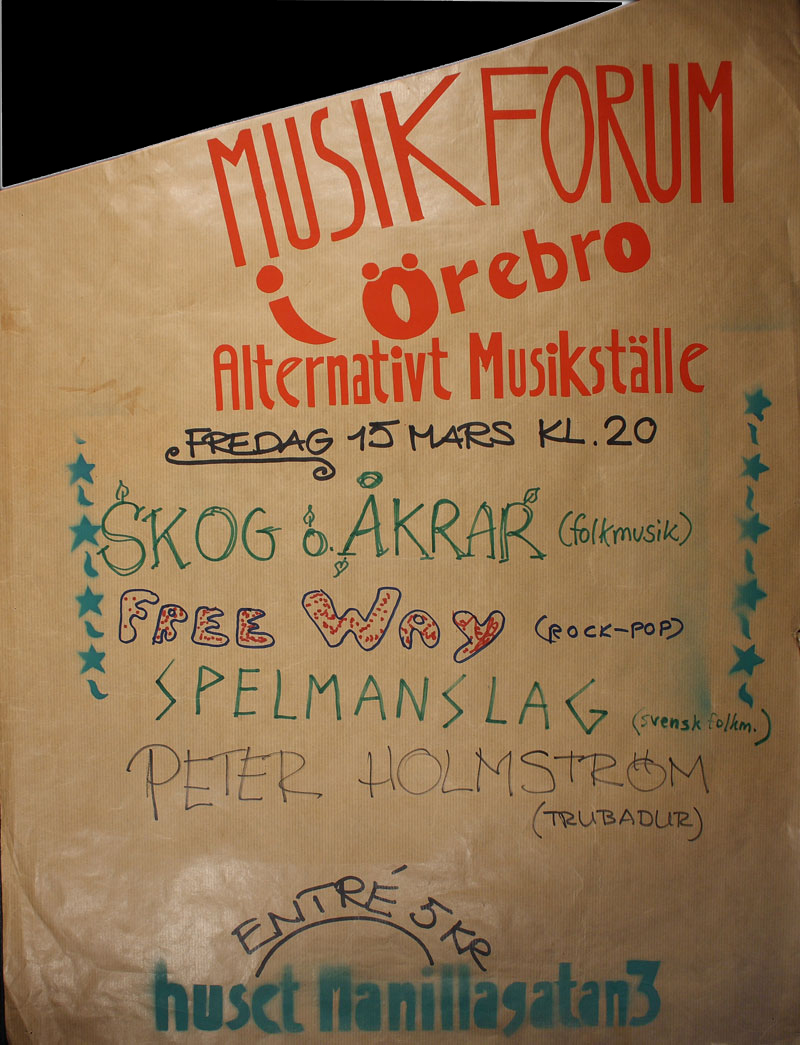 MUSIKFORUM
i Örebro
Alternativt Musikställe
FREDAG 15 MARS KL. 20
SKOG o. ÅKRAR (folkmusik)
FREE WAY (ROCK-POP)
SPELMANSLAG (svensk folkm.)
PETER HOLMSTRÖM
(TRUBADUR)
ENTRÉ 5 KR
huset Manillagatan 3